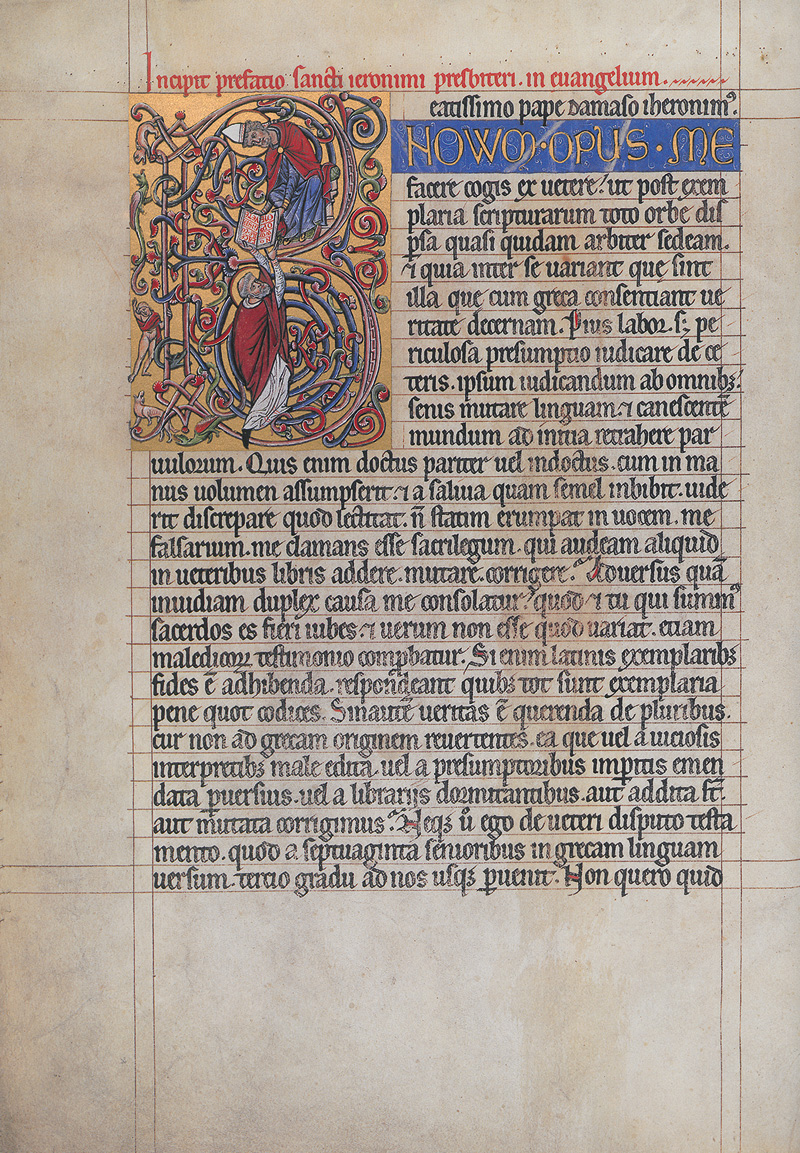 Incipit prefatio sancti ieronimi presbiteri. in euangelium.
Beatissimo pape damaso iheronimꝰ.
NOWM·OPUS·ME
facere cogis ex uetere? ut post exem
plaria scripturarum toto orbe dis
ꝑsa quasi quidam arbiter sedeam.
⁊ quia inter se uariant que sint
illa que cum greca consentiant ue
ritate decernam. Pius labor. sꝫ pe
riculosa presumptio iudicare de ce
teris. ipsum iudicandum ab omnibꝫ.
senis mutare linguam. ⁊ canescentē
mundum ad initia retrahere par
uulorum. Quis enim doctus pariter uel indoctus. cum in ma
nus uolumen assumpserit. ⁊ a saliua quam semel inbibit. uide
rit discrepare quod lectitat. n̄ statim erumpat in uocem. me
falsarium. me clamans esse sacrilegum. qui audeam aliquid
in ueteribus libris addere. mutare. corrigere? Aduersus quā
inuidiam duplex causa me consolatur? quod ⁊ tu qui summꝰ
sacerdos es fieri iubes. ⁊ uerum non esse quod uariat. etiam
maledicoꝝ testimonio comꝓbatur. Si enim latinis exemplaribꝫ
fides ē adhibenda. respondeant quibꝫ tot sunt exemplaria
pene quot codices. Sin autē ueritas ē querenda de pluribus.
cur non ad grecam originem reuertentes. ea que uel a uiciosis
interpretibꝫ male edita. uel a presumptoribus imꝑitis emen
data ꝑuersius. uel a librarijs dormitantibus. aut addita st̄.
aut mutata corrigimus? Neqꝫ ū ego de ueteri disputo testa
mento. quod a septuaginta senioribus in grecam linguam
uersum. tertio gradu ad nos usqꝫ ꝑuenit. Non quero quid